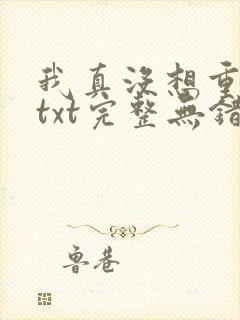 我真沒想重
txt完整無錯
魯巷